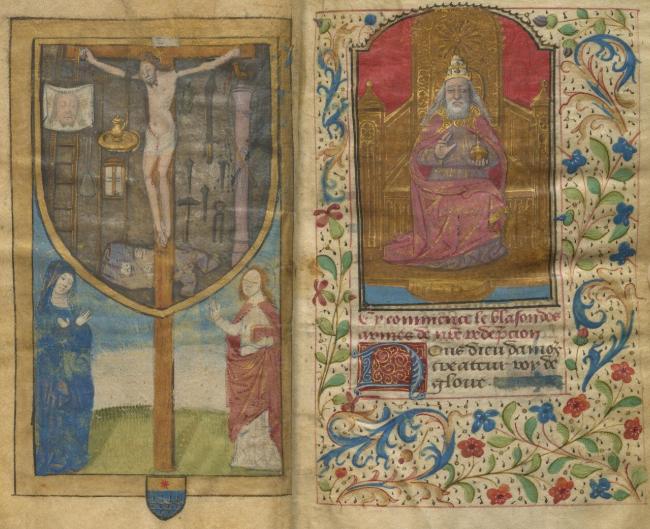 Cy commence le blason des
armes de nr̄e redẽpcion
Dous dieu damoz
createur roy de
gloire